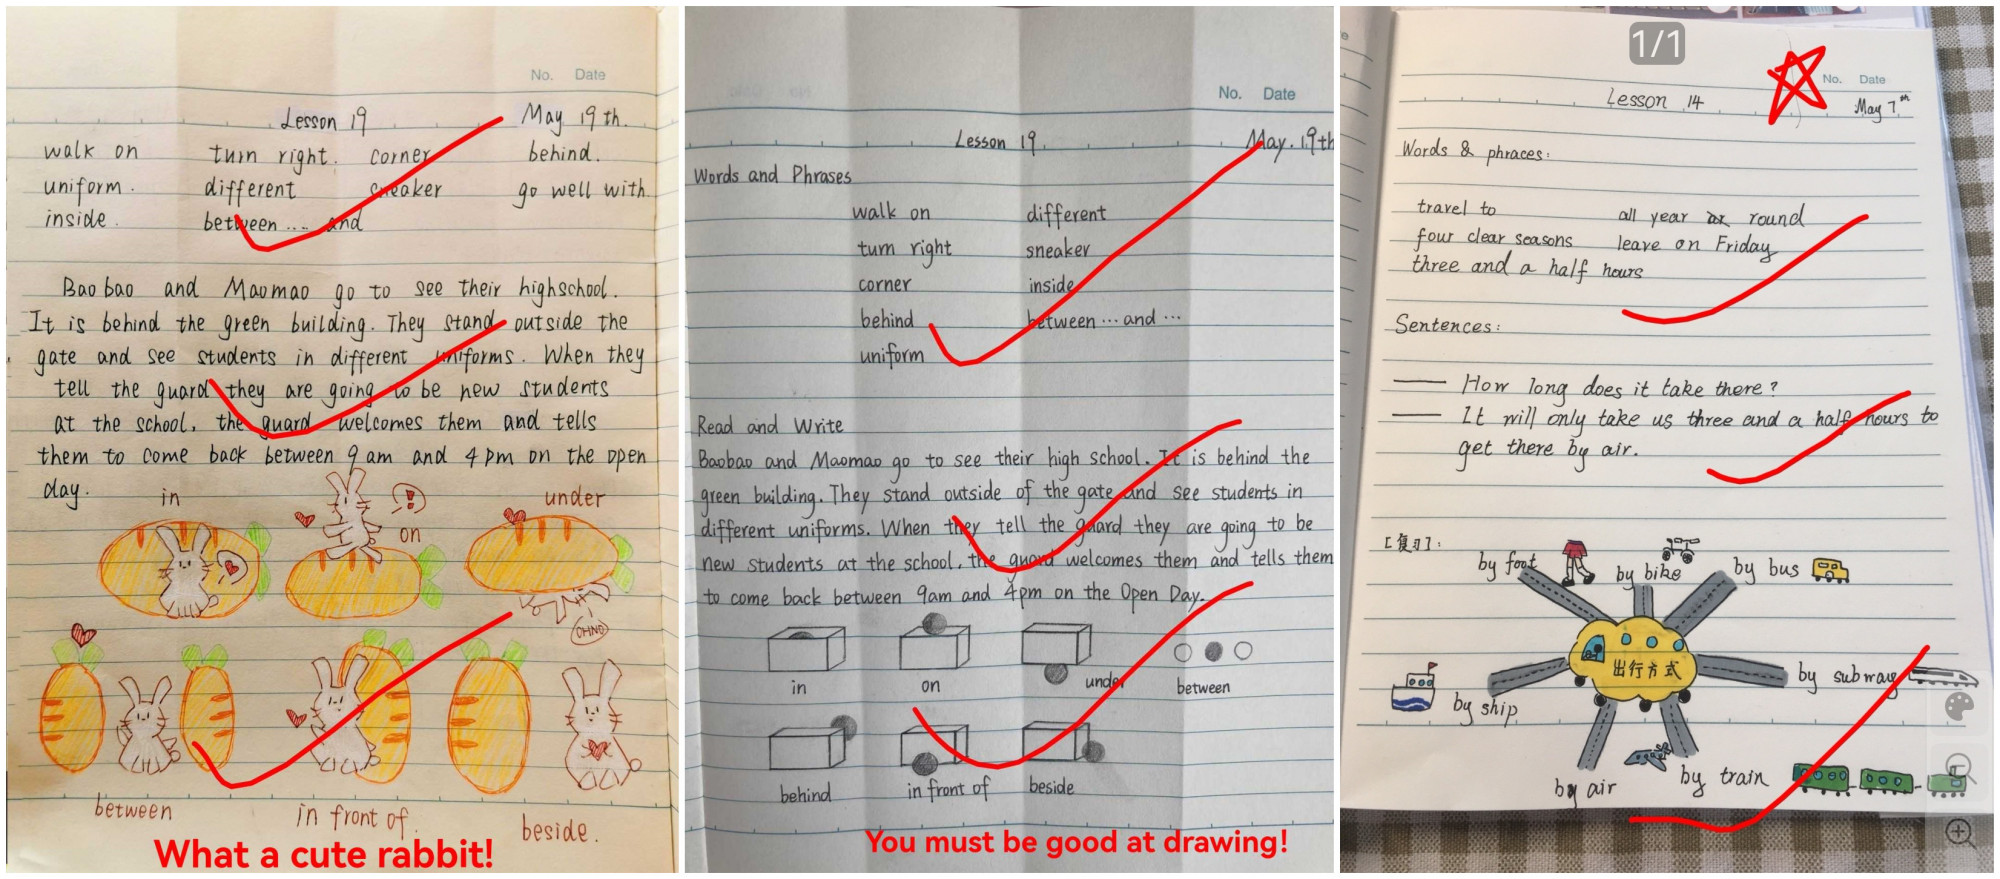 No. Date
Lesson 19 May 19th.
walk on turn right. corner behind.
uniform. different sneaker go well with.
inside. between .... and
Baobao and Maomao go to see their highschool.
It is behind the green building. They stand outside the
gate and see students in different uniforms. When they
tell the guard they are going to be new students
at the school, the guard welcomes them and tells
them to come back between 9 am and 4 pm on the open
day.
in on under
OHNO
between in front of. beside.
What a cute rabbit!
No. Date
Lesson 19 May. 19th
Words and Phrases
walk on different
turn right sneaker
corner inside
behind between ... and ...
uniform
Read and Write
Baobao and Maomao go to see their high school. It is behind the
green building. They stand outside of the gate and see students in
different uniforms. When they tell the guard they are going to be
new students at the school, the guard welcomes them and tells them
to come back between 9am and 4pm on the Open Day.
in on under between
behind in front of beside
You must be good at drawing!
1/1
No. Date
Lesson 14 May 7th
Words & phraces:
travel to all year round
four clear seasons leave on Friday
three and a half hours
Sentences:
—— How long does it take there?
—— It will only take us three and a half hours to
get there by air.
[复习]:
by foot by bike by bus
出行方式
by ship by subway
by air by train